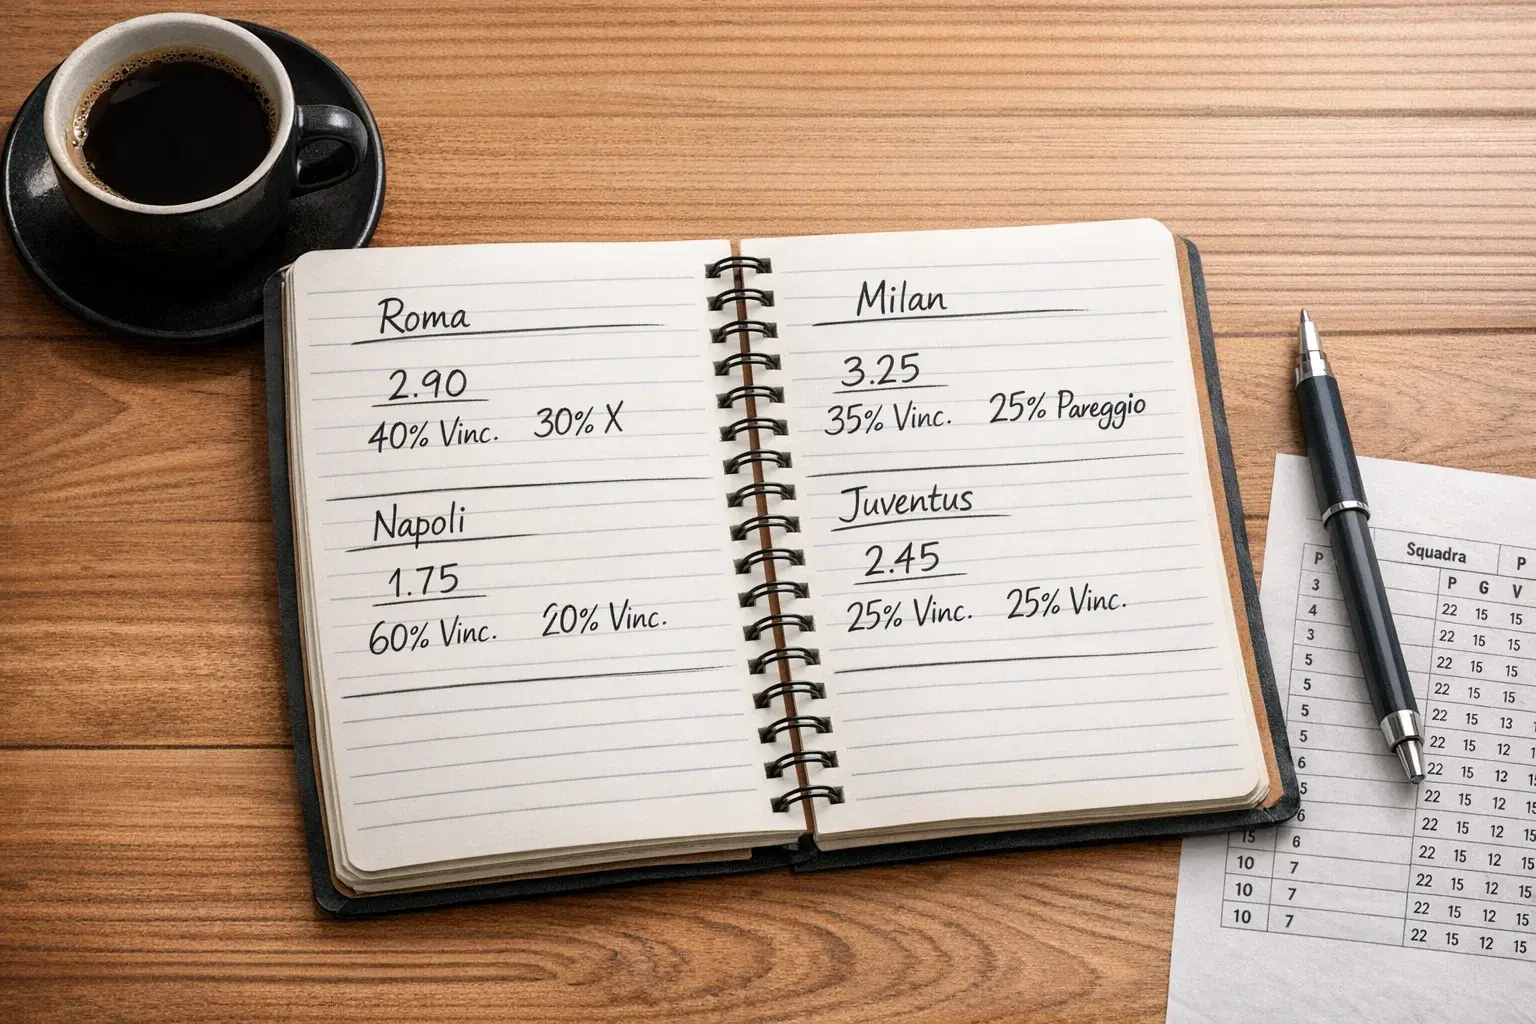 Roma
2.90
40% Vinc. 30% X
Napoli
1.75
60% Vinc. 20% Vinc.
Milan
3.25
35% Vinc. 25% Pareggio
Juventus
2.45
25% Vinc. 25% Vinc.
P Squadra P
P G V
3 22 15 15
4 22 15 15
3 22 15 15
5 22 15 15
5 22 15 13 1
5 22 15 12 1
5 22 15 12 15
6 22 15 12 15
5 22 15 12 15
6 22 15 12 15
15 6 22 15 12 15
10 7 22 15 12 15
10 7 22 15 12 15
10 7 22 15 12 15